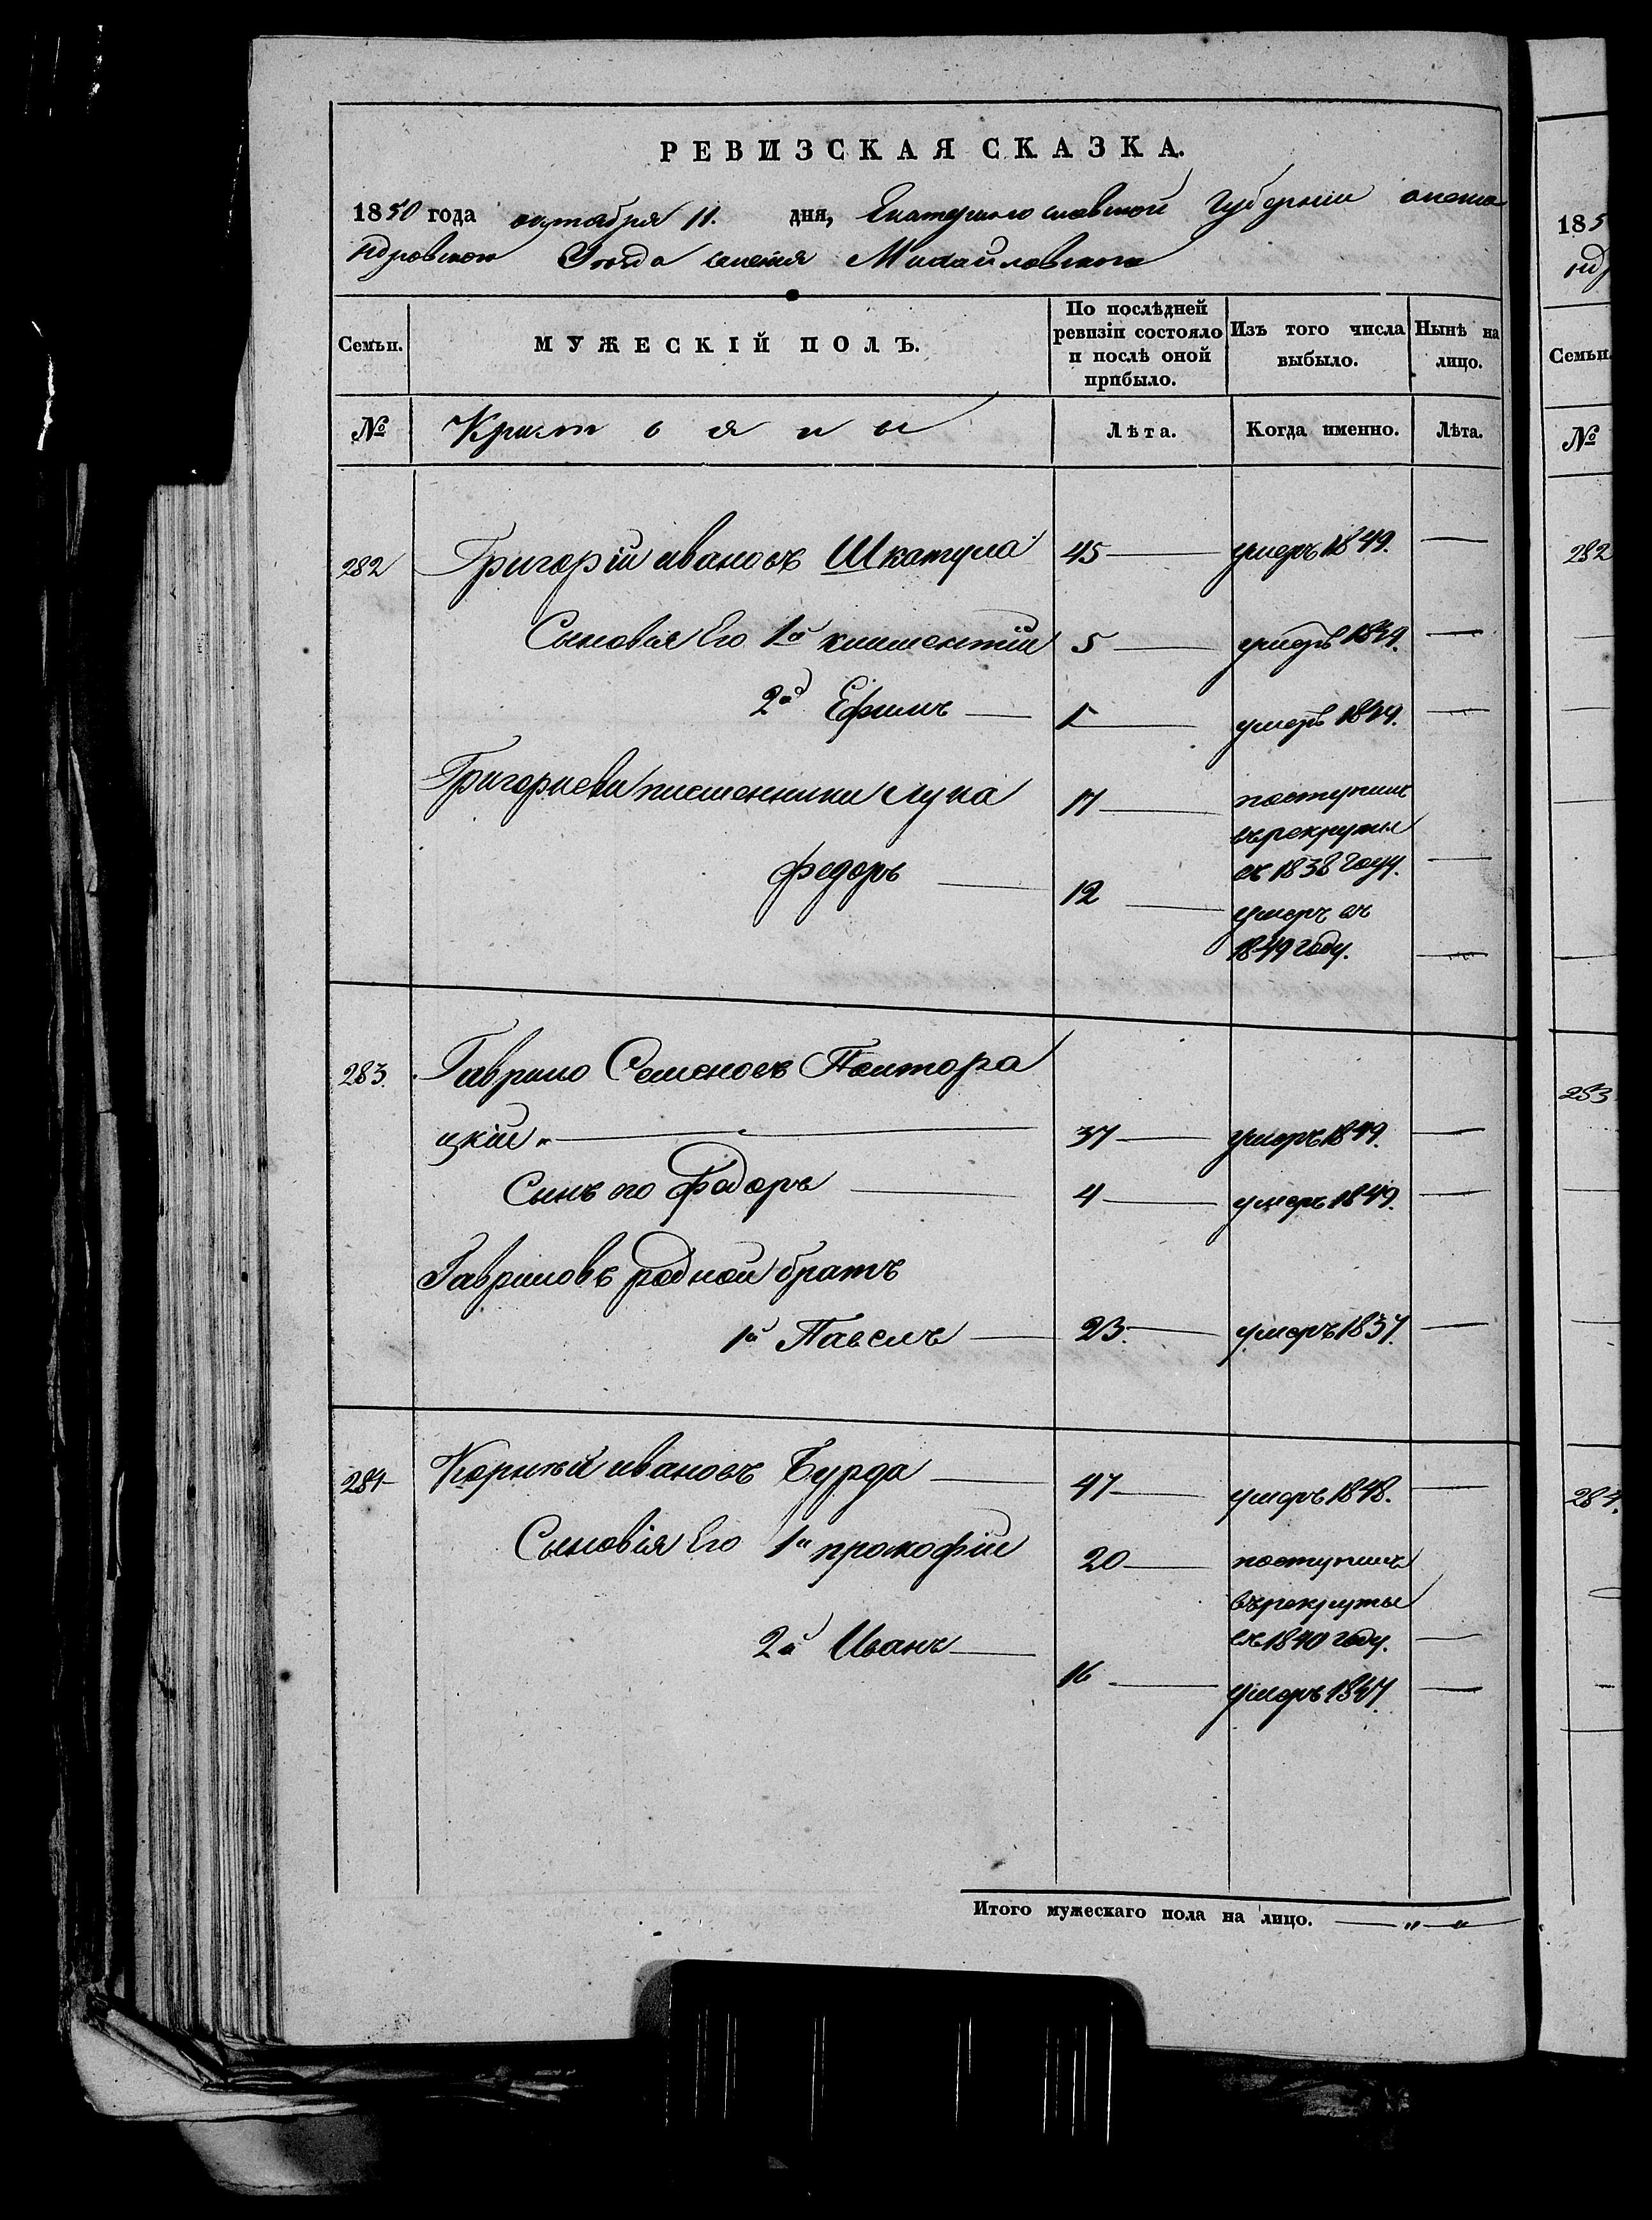 РЕВИЗСКАЯ СКАЗКА.
1850 года октября 11. дня, Екатеринославской Губернии алекса
ндровского Уезда селения Михайловского
Семьи. МУЖЕСКІЙ ПОЛЪ. По послѣдней ревизіи состояло и послѣ оной прибыло. Изъ того числа выбыло. Нынѣ на лицо.
№ Крестьяны Лѣта. Когда именно. Лѣта.
282 Григорій ивановъ Шкатула 45 — умеръ 1849. —
Сыновія Его 1й климентій 5 — умеръ 1839. —
2й Ефимъ — 1 — умеръ 1849. —
Григориеви племенники лука 17 — поступилъ
въ рекруты
въ 1838 году. —
федоръ — 12 — умеръ въ
1849 году. —
283. Гаврило Семеновъ Полтора
цкій — 37 — умеръ 1849. —
Сынъ его Федоръ — 4 — умеръ 1849. —
Гавриловъ родной братъ
1й Павелъ — 23. — умеръ 1837. —
284 Корнѣй ивановъ Бурда — 47 — умеръ 1848. —
Сыновія Его 1й прокофій 20 — поступилъ
въ рекруты
въ 1840 году. —
2й Иванъ — 16 — умеръ 1847. —
Итого мужескаго пола на лицо. — „ — „
185
нд
Семьи.
№
282
283
284.